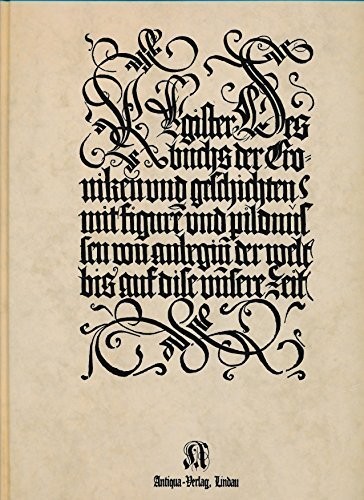 Register Des
buchs der Cro-
niken und geschichten
mit figurē und pildnüs
sen von anbegiñ der welt
bis auf dise unsere zeit
Antiqua-Verlag, Lindau